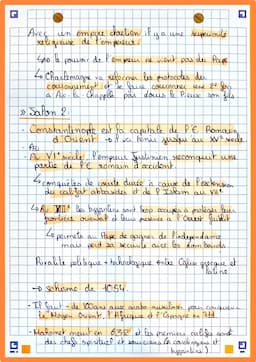 Avec un empire chrétien il y a une supériorité
religieuse de l'empereur.
↳ le pouvoir de l'empereur ne vient pas du Pape
↳ Charlemagne va réformer les protocoles du
couronnement et se faire couronner une 2e fois
à Aix la Chapelle puis donne la Pierre son fils
» Salon 2:
- Constantinople est la capitale de l'E. Romain
d'Orient → va tenir jusque au XVe siècle.
- Au
- Au VIe siècle, l'empereur Justinien reconquiert une
partie de l'E. romain d'occident.
↳ conquêtes de courte durée à cause de l'extension
du califat abbasside et de l'Islam au VIIe
↳ Au XIIe les byzantins sont trop occupés à protéger leurs
frontières orientales et leurs présence à l'Ouest faiblit
↳ permets au Pape de gagner de l'indépendance
mais perd sa sécurité avec les lombards
Rivalité politique + théologique entre Eglise grecque et
latine
→ schisme de 1054
- Il faut - de 100 ans aux arabo-musulman pour conquérir
le Moyen Orient, l'Afrique et l'Espagne en 711
- Mahomet meurt en 632 et les premiers califes sont
des chefs spirituel et
byzantins)